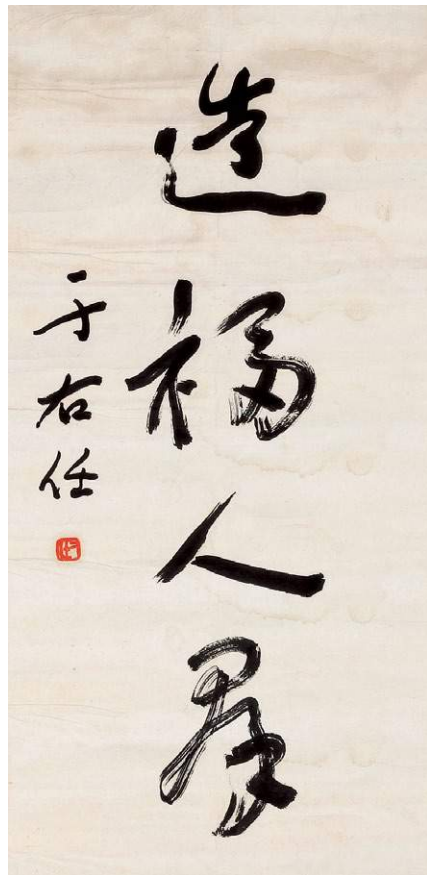 造福人羣
于右任